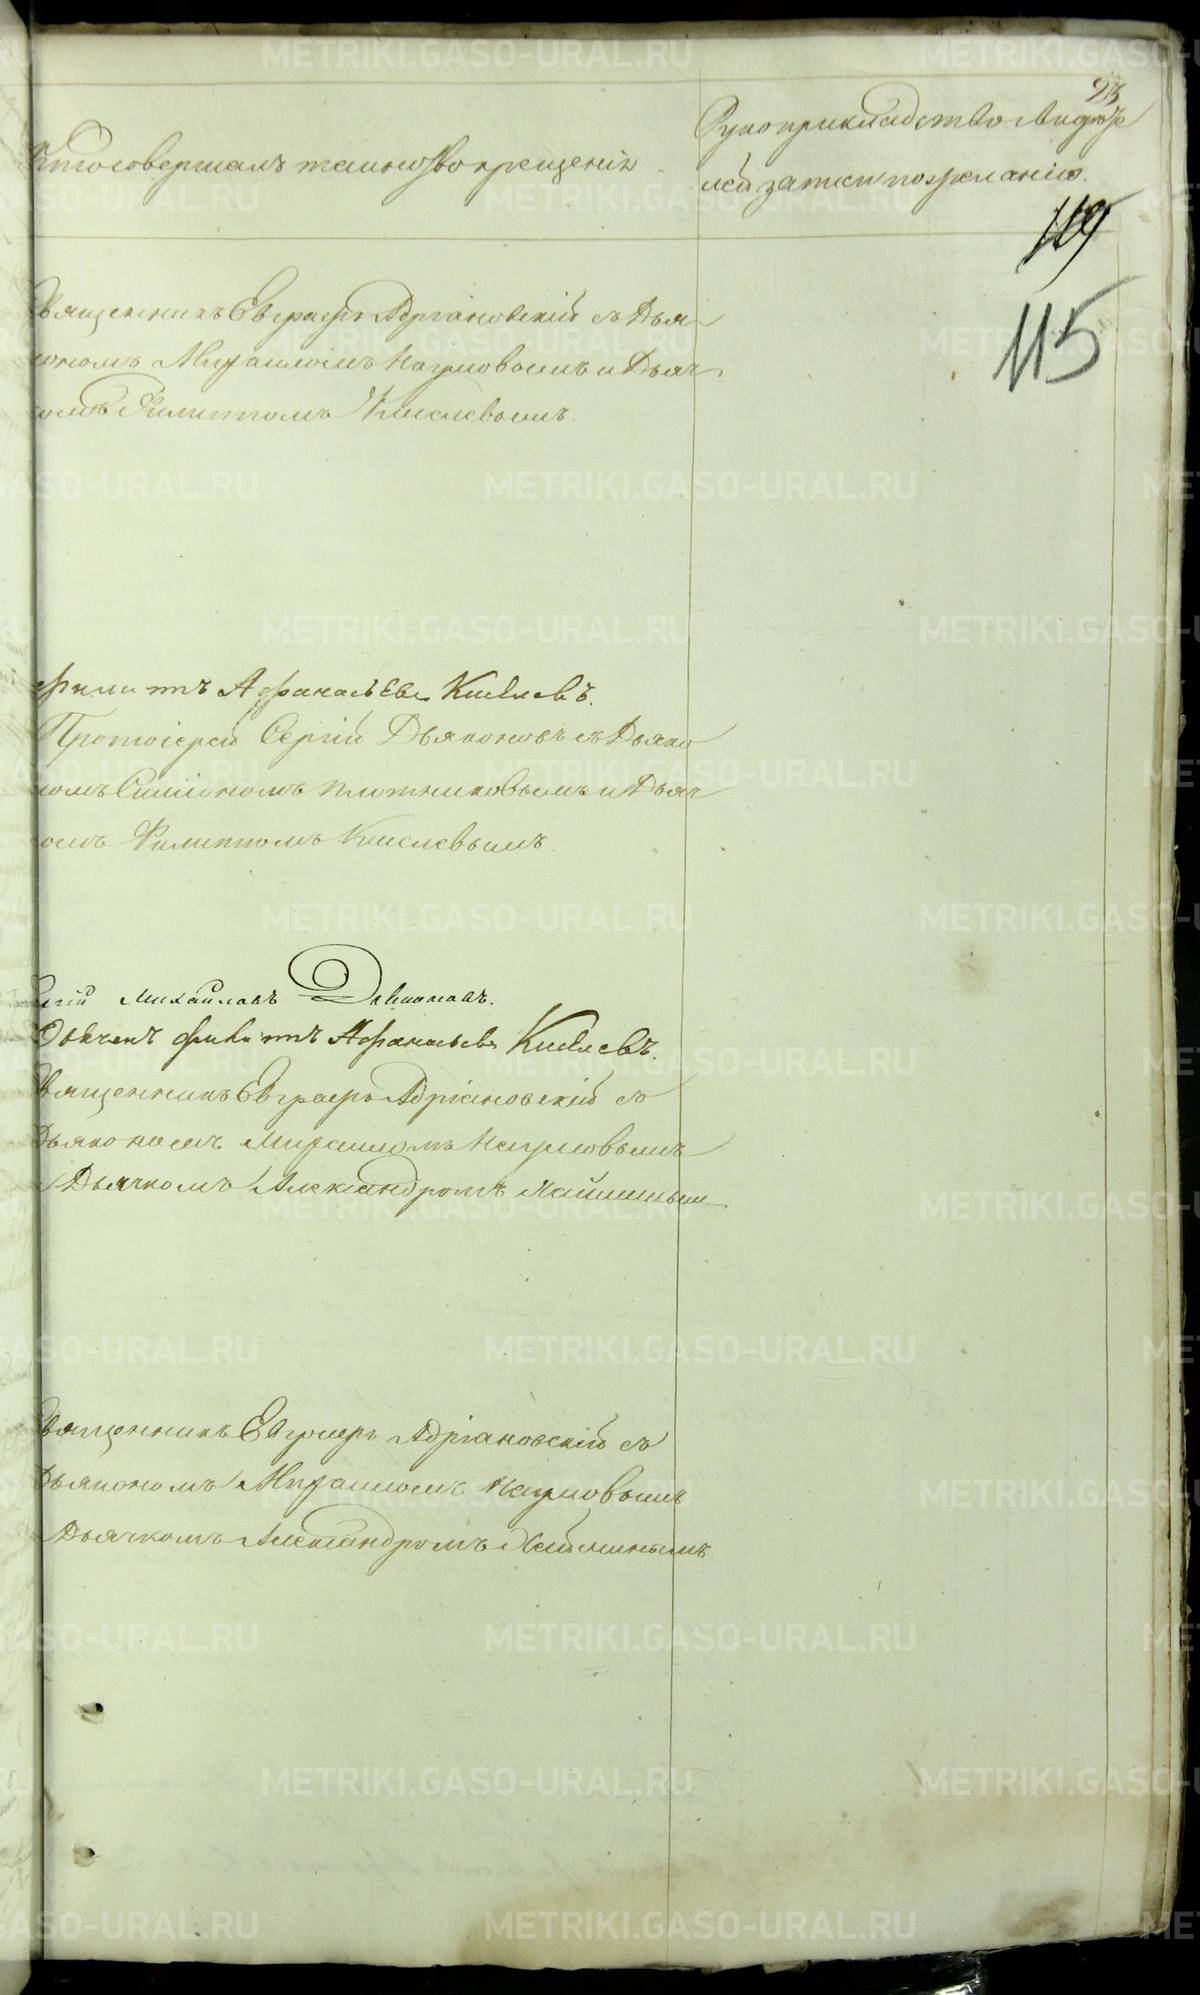 23
Кто совершалъ таинство крещенія
Рукоприкладство свидѣте
лей записи по желанію.
109
115
Священникъ Евграфъ Адріановскій съ Дья
кономъ Михаиломъ Наумовымъ и Дьяч
комъ Филиппомъ Киселевымъ.
Филиппъ Афанасьевъ Киселевъ.
Протоіерей Сергій Дьяконовъ съ Дьяко
номъ Симіономъ Плотниковымъ и Дьяч
комъ Филиппомъ Киселевымъ.
Сергій Михайловъ Дьяконовъ.
Дьячекъ Филиппъ Афанасьевъ Киселевъ.
Священникъ Евграфъ Адріановскій съ
Дьякономъ Михаиломъ Наумовымъ
Дьячкомъ Александромъ
Священникъ Евграфъ Адріановскій съ
Дьякономъ Михаиломъ Наумовымъ
Дьячкомъ Александромъ
METRIKI.GASO-URAL.RU